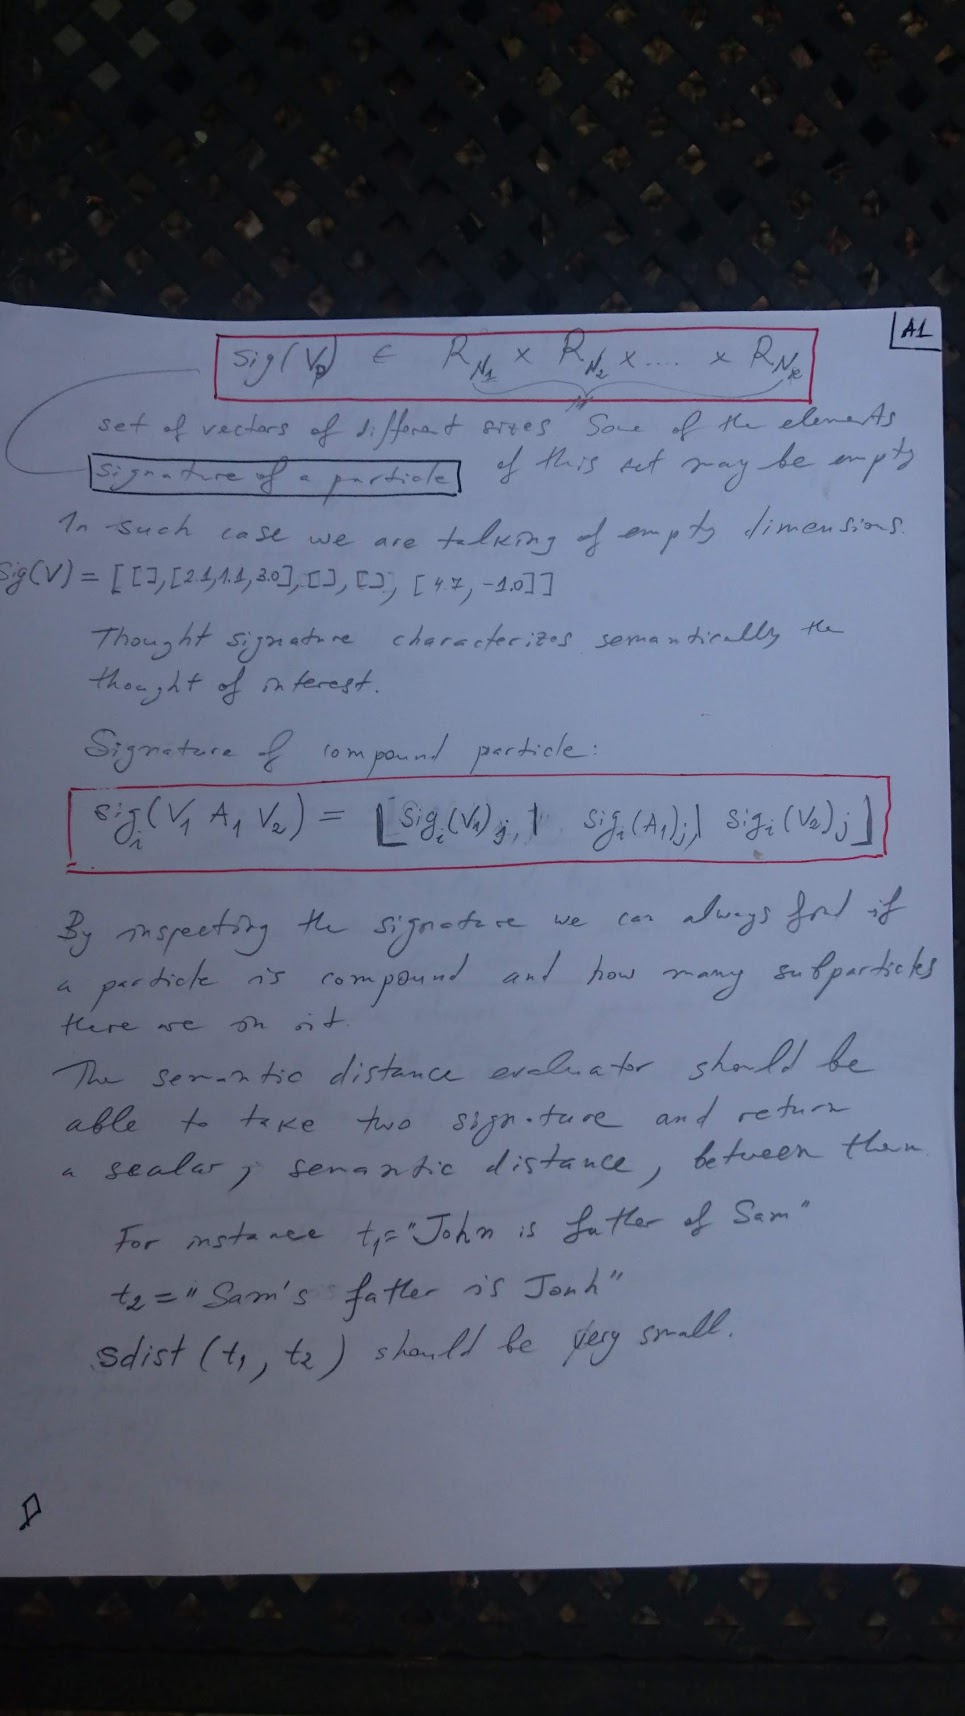 A1
Sig(Vp) ∈ R_N1 × R_N2 × .... × R_Nk
set of vectors of different sizes Some of the elements
signature of a particle of this set may be empty
In such case we are talking of empty dimensions.
Sig(V) = [[],[2.1,1.1,3.0],[],[], [4.7, -1.0]]
Thought signature characterizes semantically the
thought of interest.
Signature of compound particle:
sig_i(V1 A1 V2) = [Sig_i(V1)_j, | Sig_i(A1)_j| Sig_i(V2)_j]
By inspecting the signature we can always find if
a particle is compound and how many subparticles
there are in it.
The semantic distance evaluator should be
able to take two signature and return
a scalar, semantic distance, between them.
For instance t1="John is father of Sam"
t2="Sam's father is Jonh"
sdist(t1, t2) should be very small.